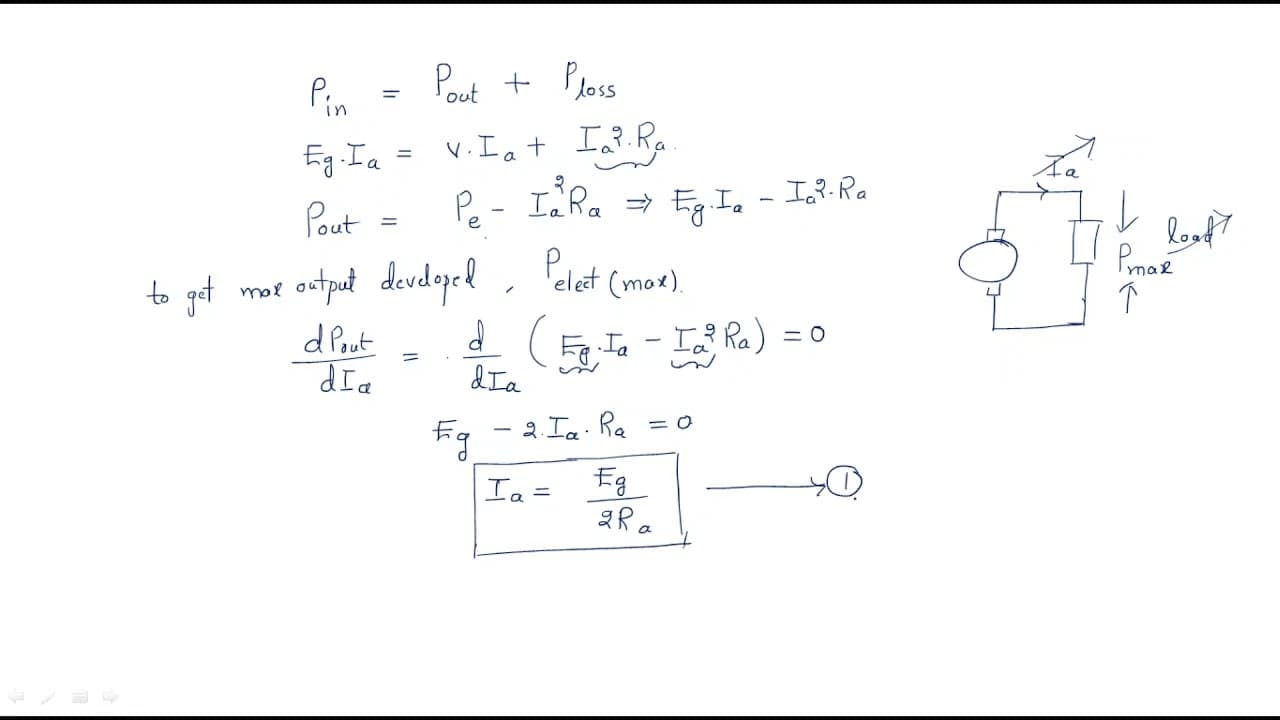 P_in = P_out + P_loss
Eg.Ia = V.Ia + Ia².Ra.
P_out = Pe - Ia²Ra ⇒ Eg.Ia - Ia².Ra
to get max output developed, P_elect(max).
dPout/dIa = d/dIa (Eg.Ia - Ia²Ra) = 0
Eg - 2.Ia.Ra = 0
Ia = Eg/2Ra → ①
Ia
load
Pmax